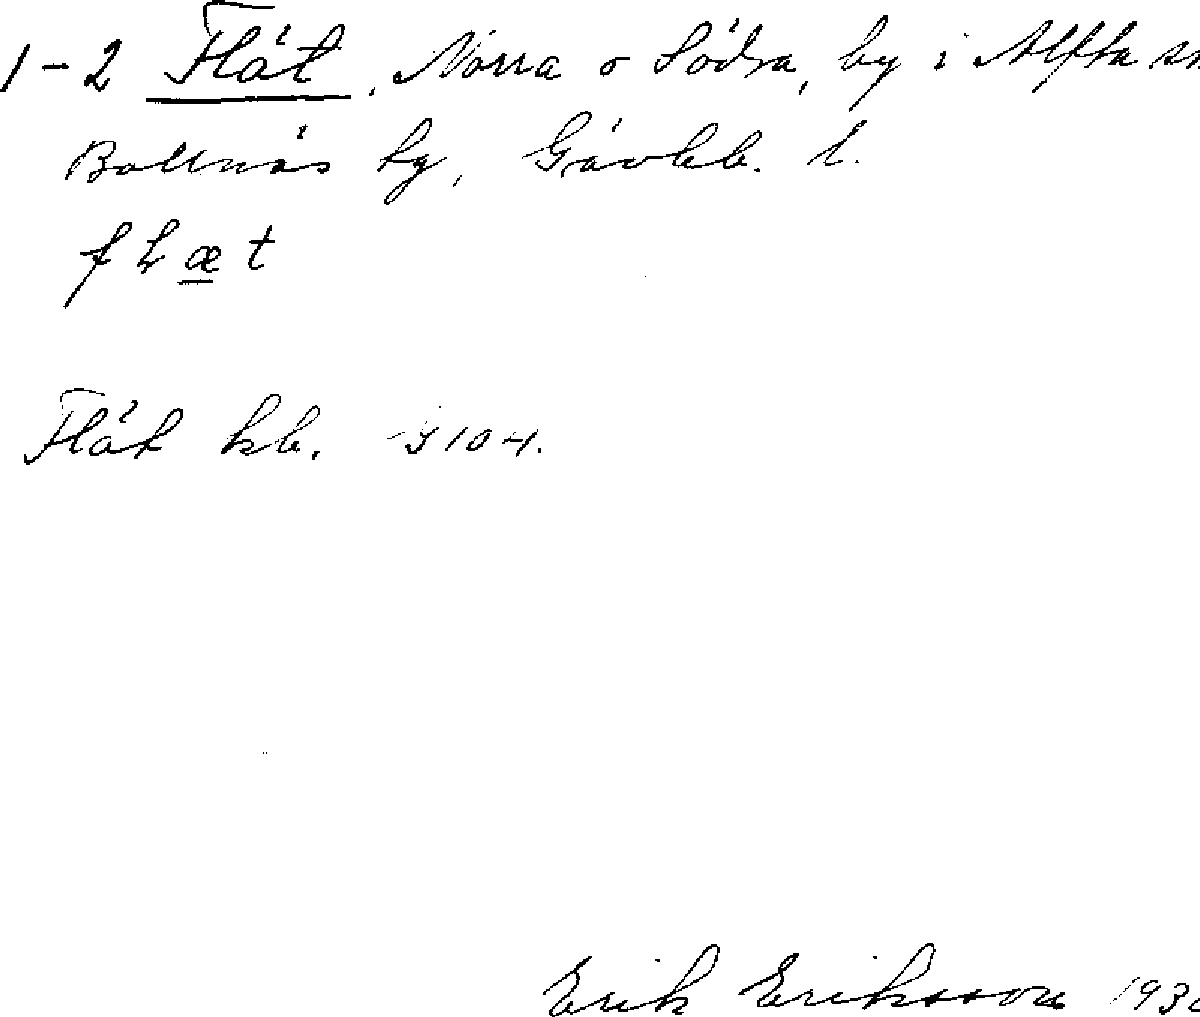 1-2 Flät, Norra o Södra, by i Alfta sn
Bollnäs tg, Gävleb. l.
flæt
Flät kb. J104.
Erik Eriksson